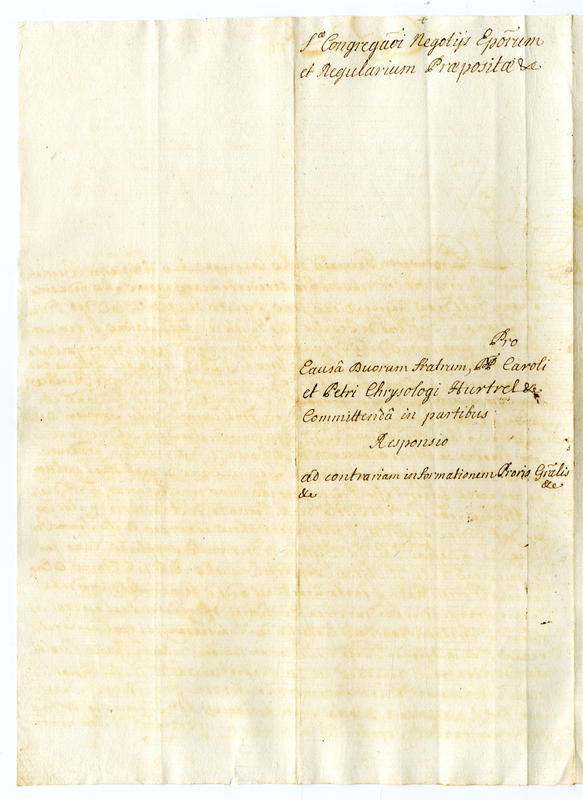 S.ae Congregãoi Negotijs Epõrum
et Regularium Præpositæ &c
Pro
Causâ Duorum Fratrum, PP Caroli
et Petri Chrysologi Hurtrel &c
Committendâ in partibus
Responsio
ad contrariam informationem Proris Grãlis
&c &c